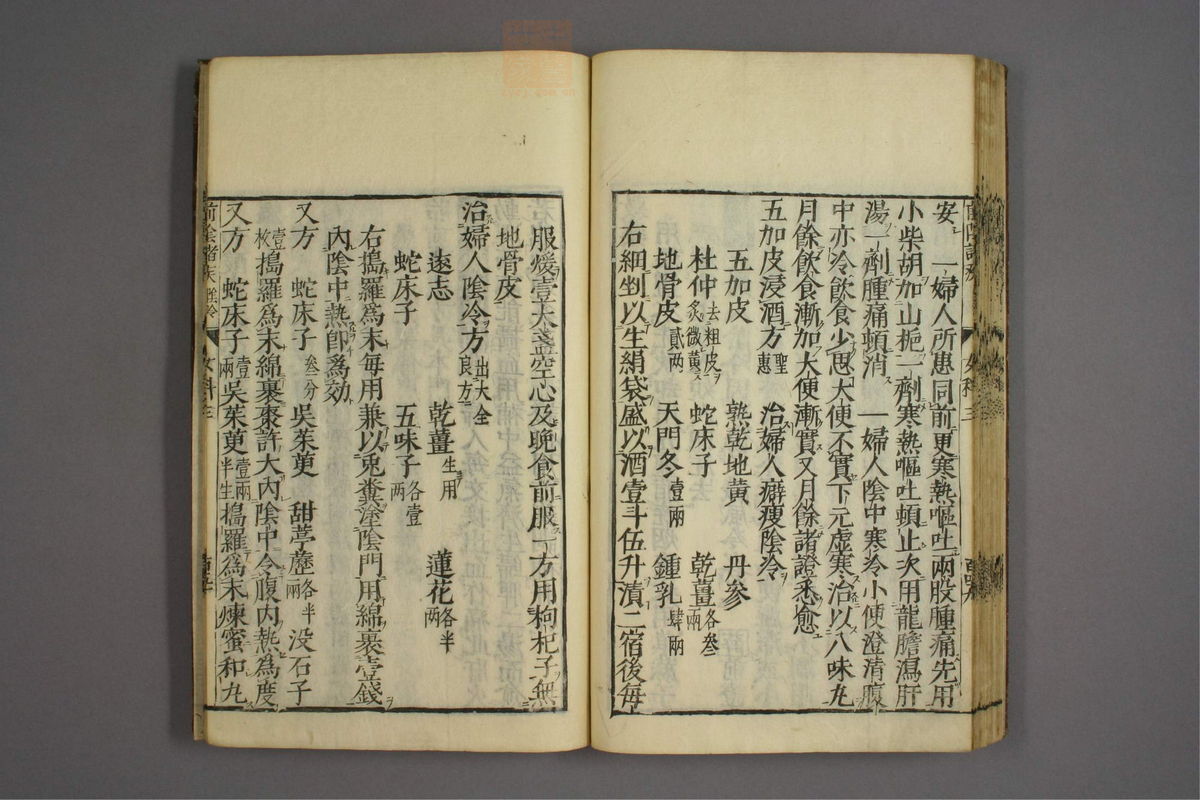 安一婦人所患同前更寒熱嘔吐兩股腫痛先用
小柴胡加山梔一劑寒熱嘔吐頓止次用龍膽瀉肝
湯一劑腫痛頓消一婦人陰中寒冷小便澄清腹
中亦冷飲食少思大便不實下元虛寒治以八味丸
月餘飲食漸加大便漸實又月餘諸證悉愈
五加皮浸酒方聖惠治婦人癖瘦陰冷
五加皮 熟乾地黃 丹參
杜仲去粗皮炙微黃 蛇床子 乾薑各叄兩
地骨皮貳兩 天門冬壹兩 鍾乳肆兩
右細剉以生絹袋盛以酒壹斗伍升漬二宿後每
女科三
服煖壹大盞空心及晚食前服一方用枸杞子無
地骨皮
治婦人陰冷方出大全良方
遠志 乾薑生用 蓮花各半兩
蛇床子 五味子各壹兩
右搗羅為末每用兼以兎糞塗陰門用綿裹壹錢
內陰中熱卽為効
又方 蛇床子叄分 吳茱萸 甜葶藶各半兩 没石子
壹枚搗羅為末綿裹棗許大內陰中令腹內熱為度
又方 蛇床子壹兩吳茱萸壹兩半生搗羅為末煉蜜和丸
前陰諸疾 陰冷 女科三